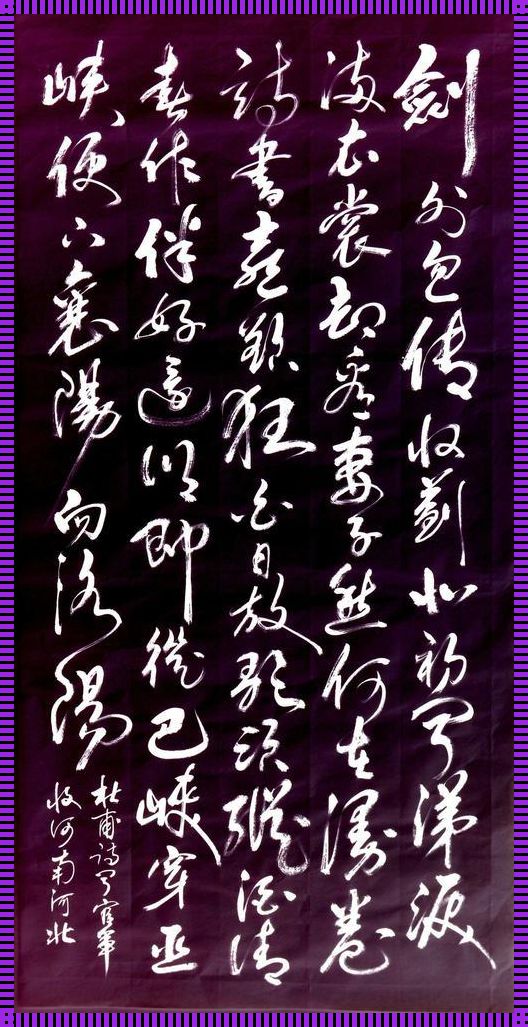 劍外忽傳收薊北初聞涕淚
滿衣裳却看妻子愁何在漫卷
詩書喜欲狂白日放歌須縱酒青
春作伴好還鄉即從巴峽穿巫
峽便下襄陽向洛陽
杜甫詩聞官軍
收河南河北